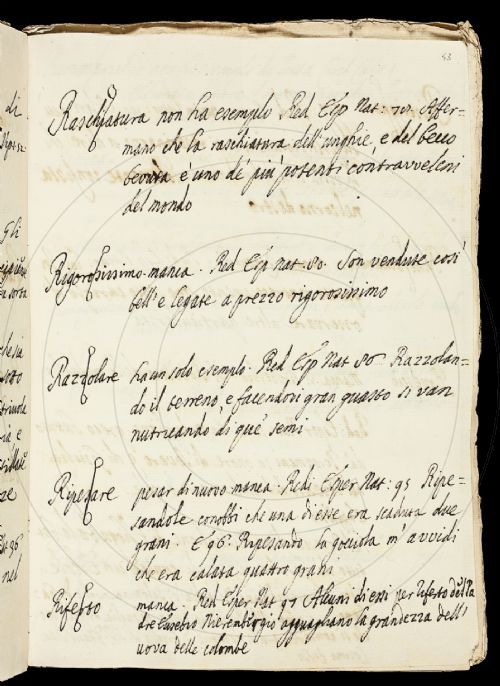 53
Raschiatura non ha esempilo Red Esp Nat: 70. Affer-
mano che la raschiatura dell'unghie, e del becco
bevuta è uno de' più potenti contravveleni
del mondo
Rigorosissimo manca. Red Esp Nat. 80. Son vendute così
bell' e legate a prezzo rigorosissimo
Razzolare ha un solo esempio. Red Esp Nat 86. Razzolan-
do il terreno, e facendovi gran guasto si van
nutricando di que' semi
Ripesare pesar di nuovo manca. Redi Esper Nat: 95 Ripe-
sandole conobbi che una di esse era scaduta due
grani. E 96. Ripesando la gocciola m' avvidi
che era calata quattro grani
Riferto manca. Red Esper Nat 97 Alcuni di essi per riferto del Pa
dre Eusebio Nierembergio agguagliano la grandezza dell'
uova delle colombe
di
Gli
e
nel